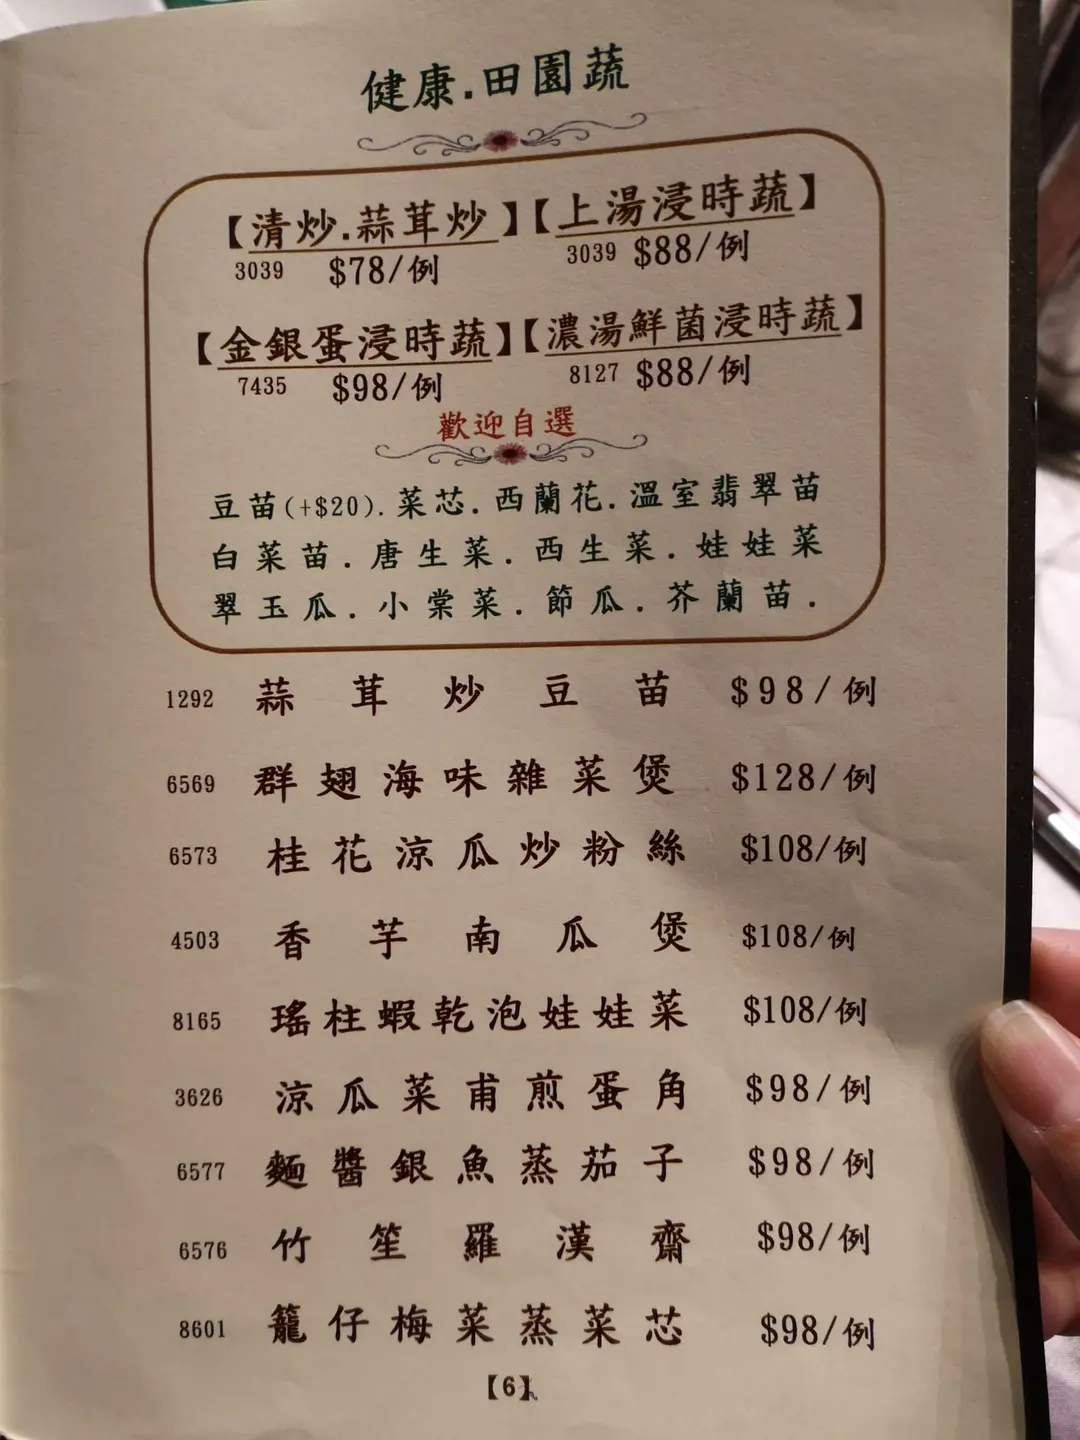 健康.田園蔬
【清炒.蒜茸炒】【上湯浸時蔬】
3039 $78/例 3039 $88/例
【金銀蛋浸時蔬】【濃湯鮮菌浸時蔬】
7435 $98/例 8127 $88/例
歡迎自選
豆苗(+$20).菜芯.西蘭花.溫室翡翠苗
白菜苗.唐生菜.西生菜.娃娃菜
翠玉瓜.小棠菜.節瓜.芥蘭苗.
1292 蒜茸炒豆苗 $98/例
6569 群翅海味雜菜煲 $128/例
6573 桂花涼瓜炒粉絲 $108/例
4503 香芋南瓜煲 $108/例
8165 瑤柱蝦乾泡娃娃菜 $108/例
3626 涼瓜菜甫煎蛋角 $98/例
6577 麵醬銀魚蒸茄子 $98/例
6576 竹笙羅漢齋 $98/例
8601 籠仔梅菜蒸菜芯 $98/例
【6】